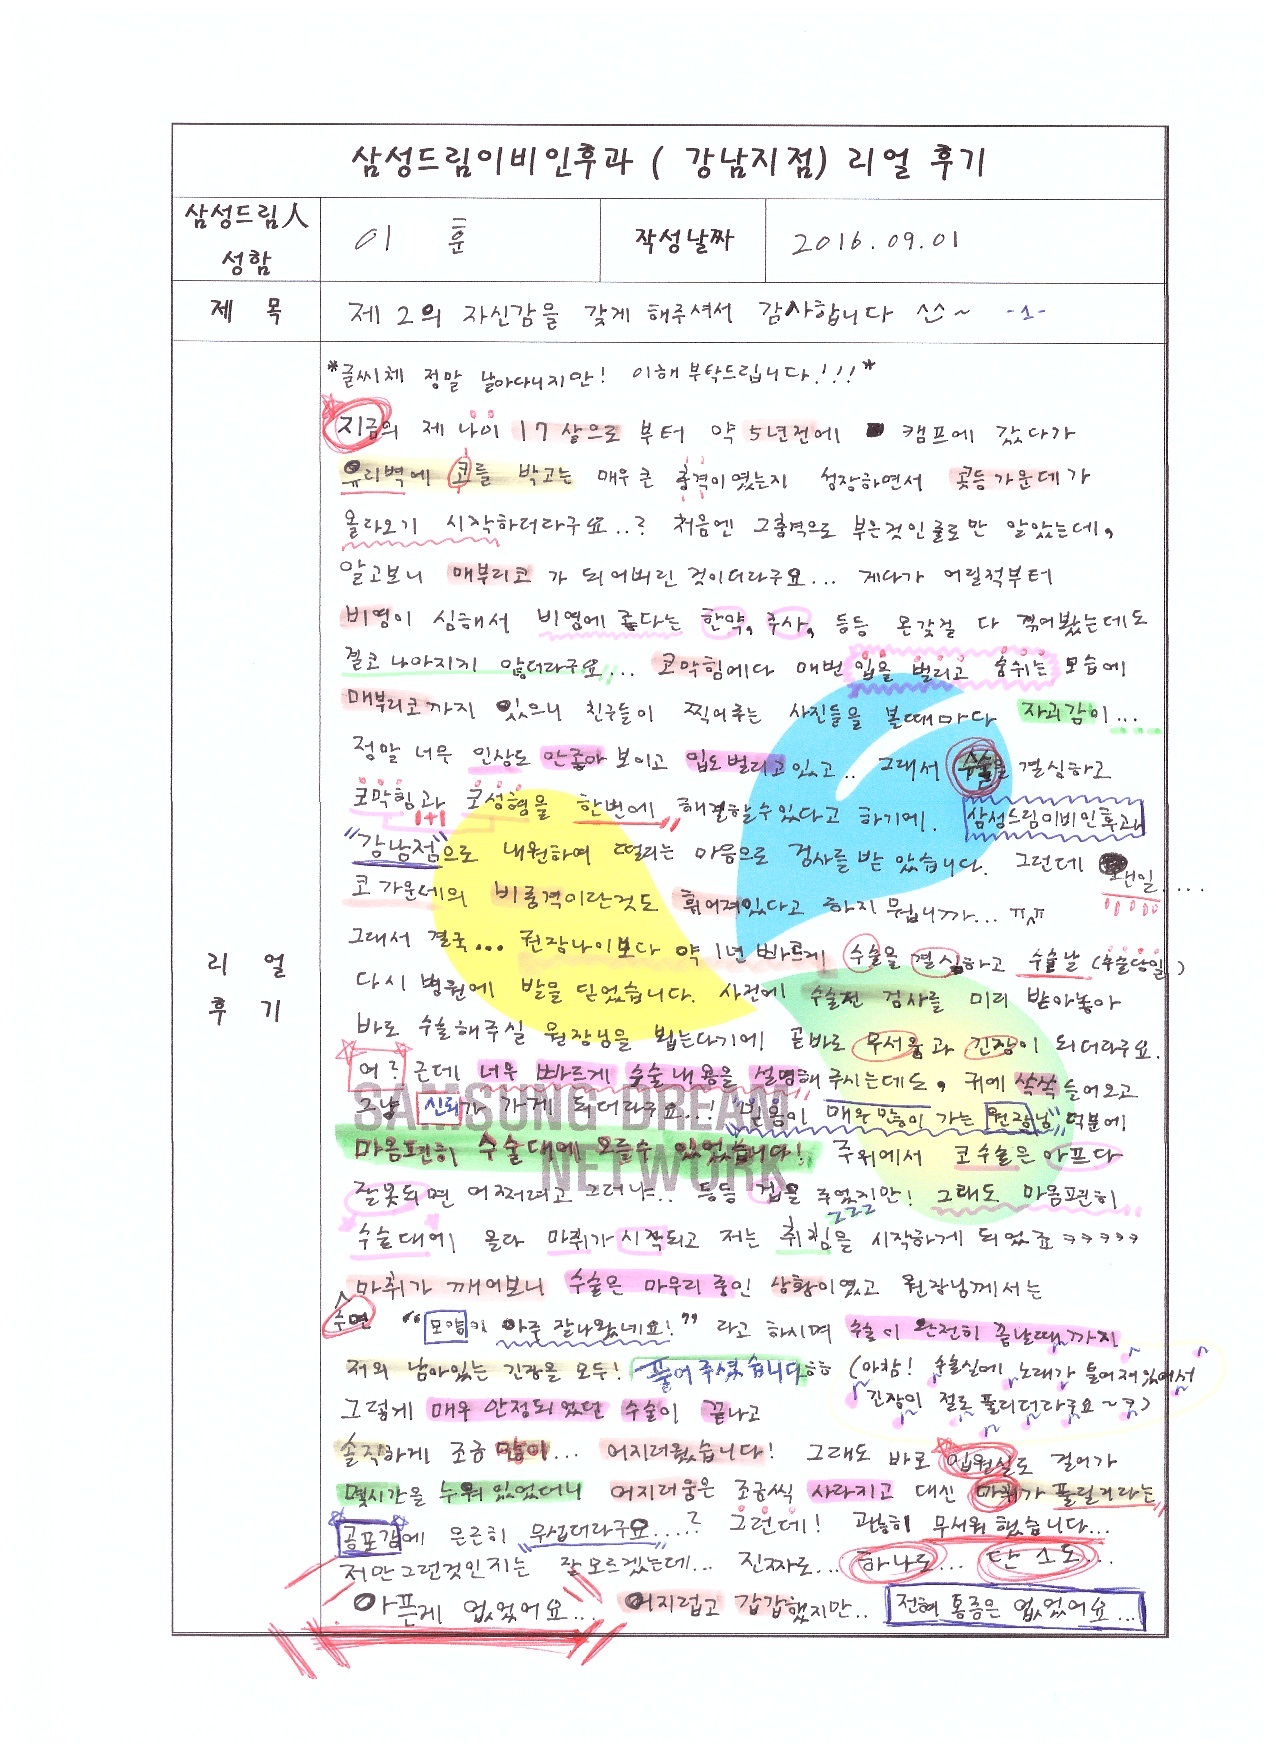 삼성드림이비인후과 ( 강남지점) 리얼 후기
삼성드림人 성함
이 훈
작성날짜
2016.09.01
제 목
제 2의 자신감을 갖게 해주셔서 감사합니다 ^^~ -1-
리 얼 후 기
*글씨체 정말 날아다니지만! 이해 부탁드립니다!!!*
지금의 제 나이 17살으로 부터 약 5년전에 캠프에 갔다가
유리벽에 코를 박고는 매우 큰 충격이였는지 성장하면서 콧등가운데가
올라오기 시작하더라구요..? 처음엔 그충격으로 부은것인줄로만 알았는데,
알고보니 매부리코 가 되어버린 것이더라구요... 게다가 어릴적부터
비염이 심해서 비염에 좋다는 한약, 주사, 등등 온갖걸 다 겪어봤는데도
결코 나아지지 않더라구요... 코막힘에다 매번 입을 벌리고 숨쉬는 모습에
매부리코까지 있으니 친구들이 찍어주는 사진들을 볼때마다 자괴감이...
정말 너무 인상도 안좋아 보이고 입도벌리고있고.. 그래서 수술을 결심하고
코막힘과 코성형을 한번에 해결할수있다고 하기에. 삼성드림이비인후과
1+1
"강남점"으로 내원하여 떨리는 마음으로 검사를 받았습니다. 그런데 왠일....
코가운데의 비중격이란것도 휘어져있다고 하지 뭡니까... ㅠㅠ
그래서 결국... 권장나이보다 약 1년 빠르게 수술을 결심하고 수술날 (수술당일)
다시 병원에 발을 딛었습니다. 사전에 수술전 검사를 미리 받아놓아
바로 수술해주실 원장님을 뵙는다기에! 곧바로 무서움과 긴장이 되더라구요.
어? 근데 너무 빠르게 수술내용을 설명해 주시는데도, 귀에 쏙쏙 들어오고
그냥 신뢰가 가게 되더라구요...! "믿음이 매우 많이 가는 원장님" 덕분에
SAMSUNG DREAM
마음편히 수술대에 오를수 있었습니다! 주위에서 코수술은 아프다
NETWORK
잘못되면 어쩌려고 그러냐.. 등등 겁을 주었지만! 그래도 마음편히
수술대에 올라 마취가 시작되고 저는 취침을 시작하게 되었죠 ㅋㅋㅋㅋㅋ
zzz
수면 마취가 깨어보니 수술은 마무리 중인 상황이였고 원장님께서는
"모양이 아주 잘나왔네요!" 라고 하시며 수술이 완전히 끝날때까지
저의 남아있는 긴장을 모두! 풀어주셨습니다ㅎㅎ (아참! 수술실에 노래가 틀어져있어서
그렇게 매우 안정되었던 수술이 끝나고 긴장이 절로 풀리더라구요~ㅋ)
솔직하게 조금 많이... 어지러웠습니다! 그래도 바로 입원실로 걸어가
몇시간을 누워있었더니 어지러움은 조금씩 사라지고 대신 마취가 풀릴거라는
공포감에 은근히 무섭더라구요....? 그런데! 괜히 무서워 했습니다...
저만 그런것인지는 잘 모르겠는데... 진짜로... 하나도... 단 1도...
아픈게 없었어요... 어지럽고 갑갑했지만.. 전혀 통증은 없었어요...